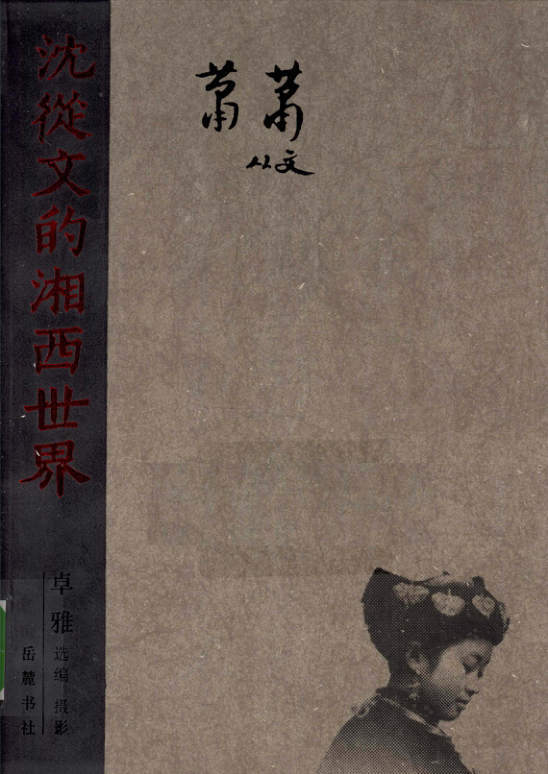 沈從文的湘西世界
萧萧
从文
卓雅 选编 摄影
岳麓书社